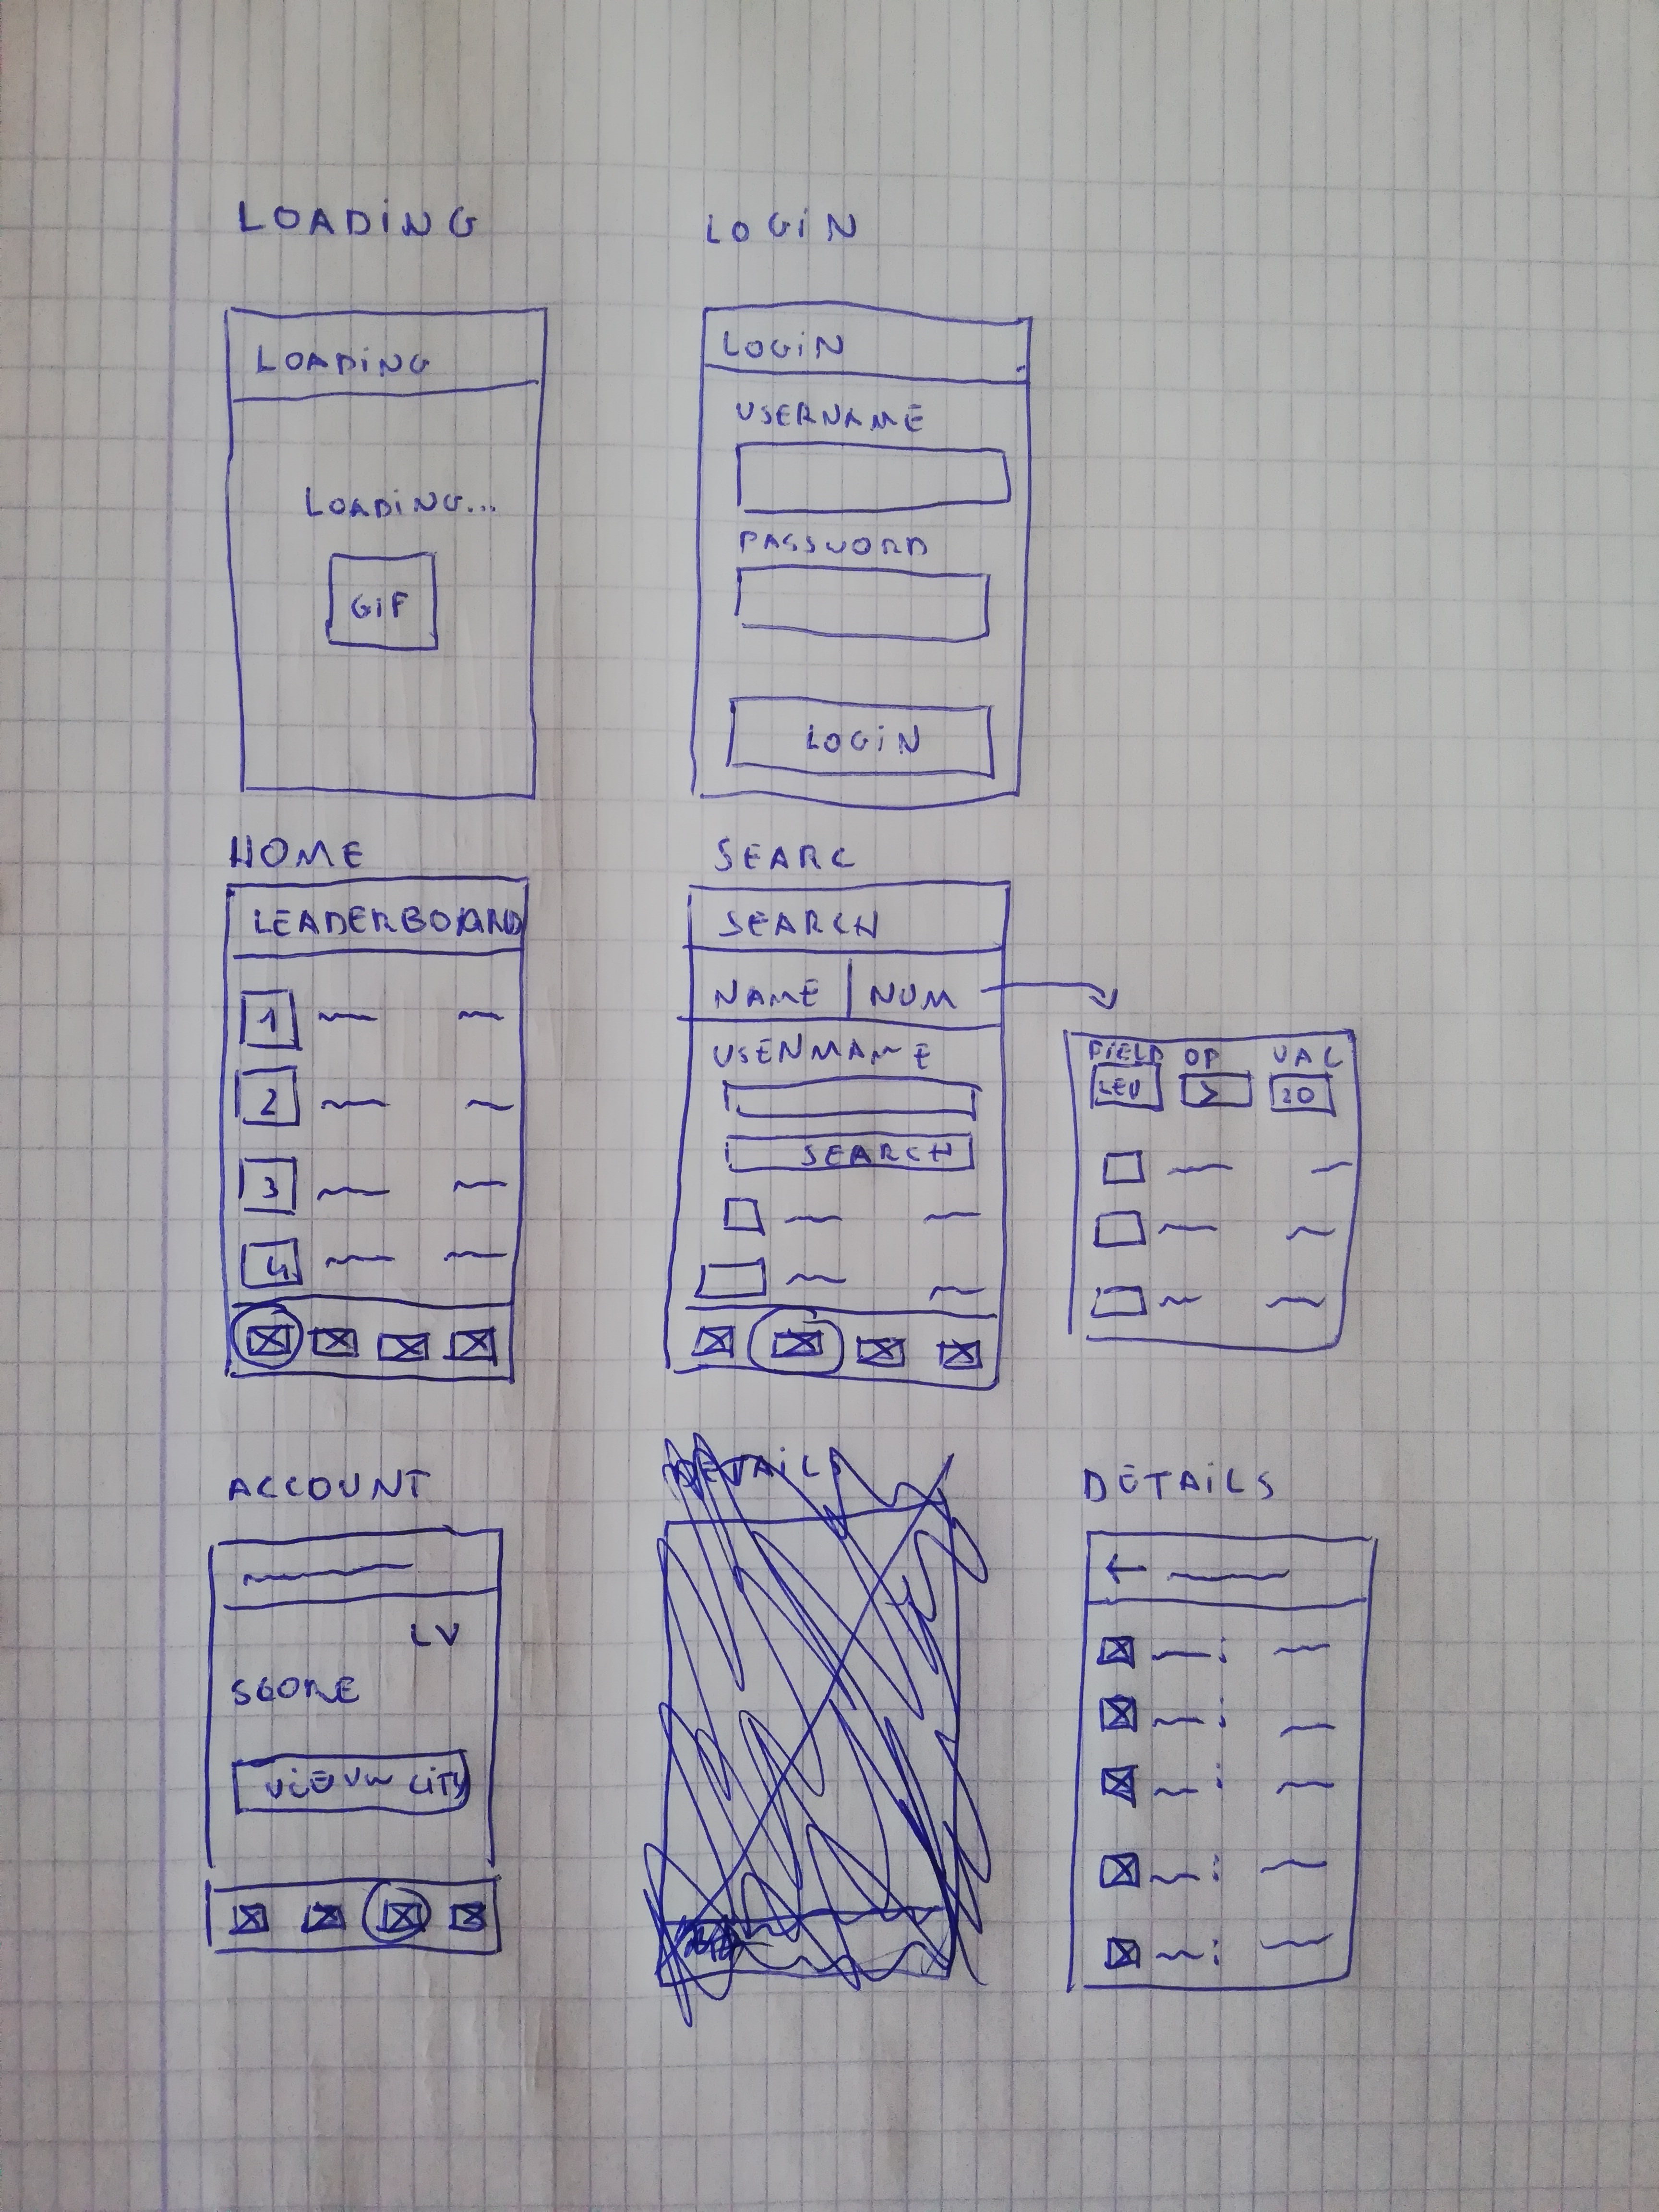 LOADING
LOGIN
LOADING
LOADING...
GIF
LOGIN
USERNAME
PASSWORD
LOGIN
HOME
LEADERBOARD
1
2
3
4
SEARC
SEARCH
NAME | NUM
USENMAME
SEARCH
FIELD OP VAL
LEV > 20
ACCOUNT
LV
SCORE
VIEVW CITY
DETAILS
DETAILS
←
:
:
:
:
: